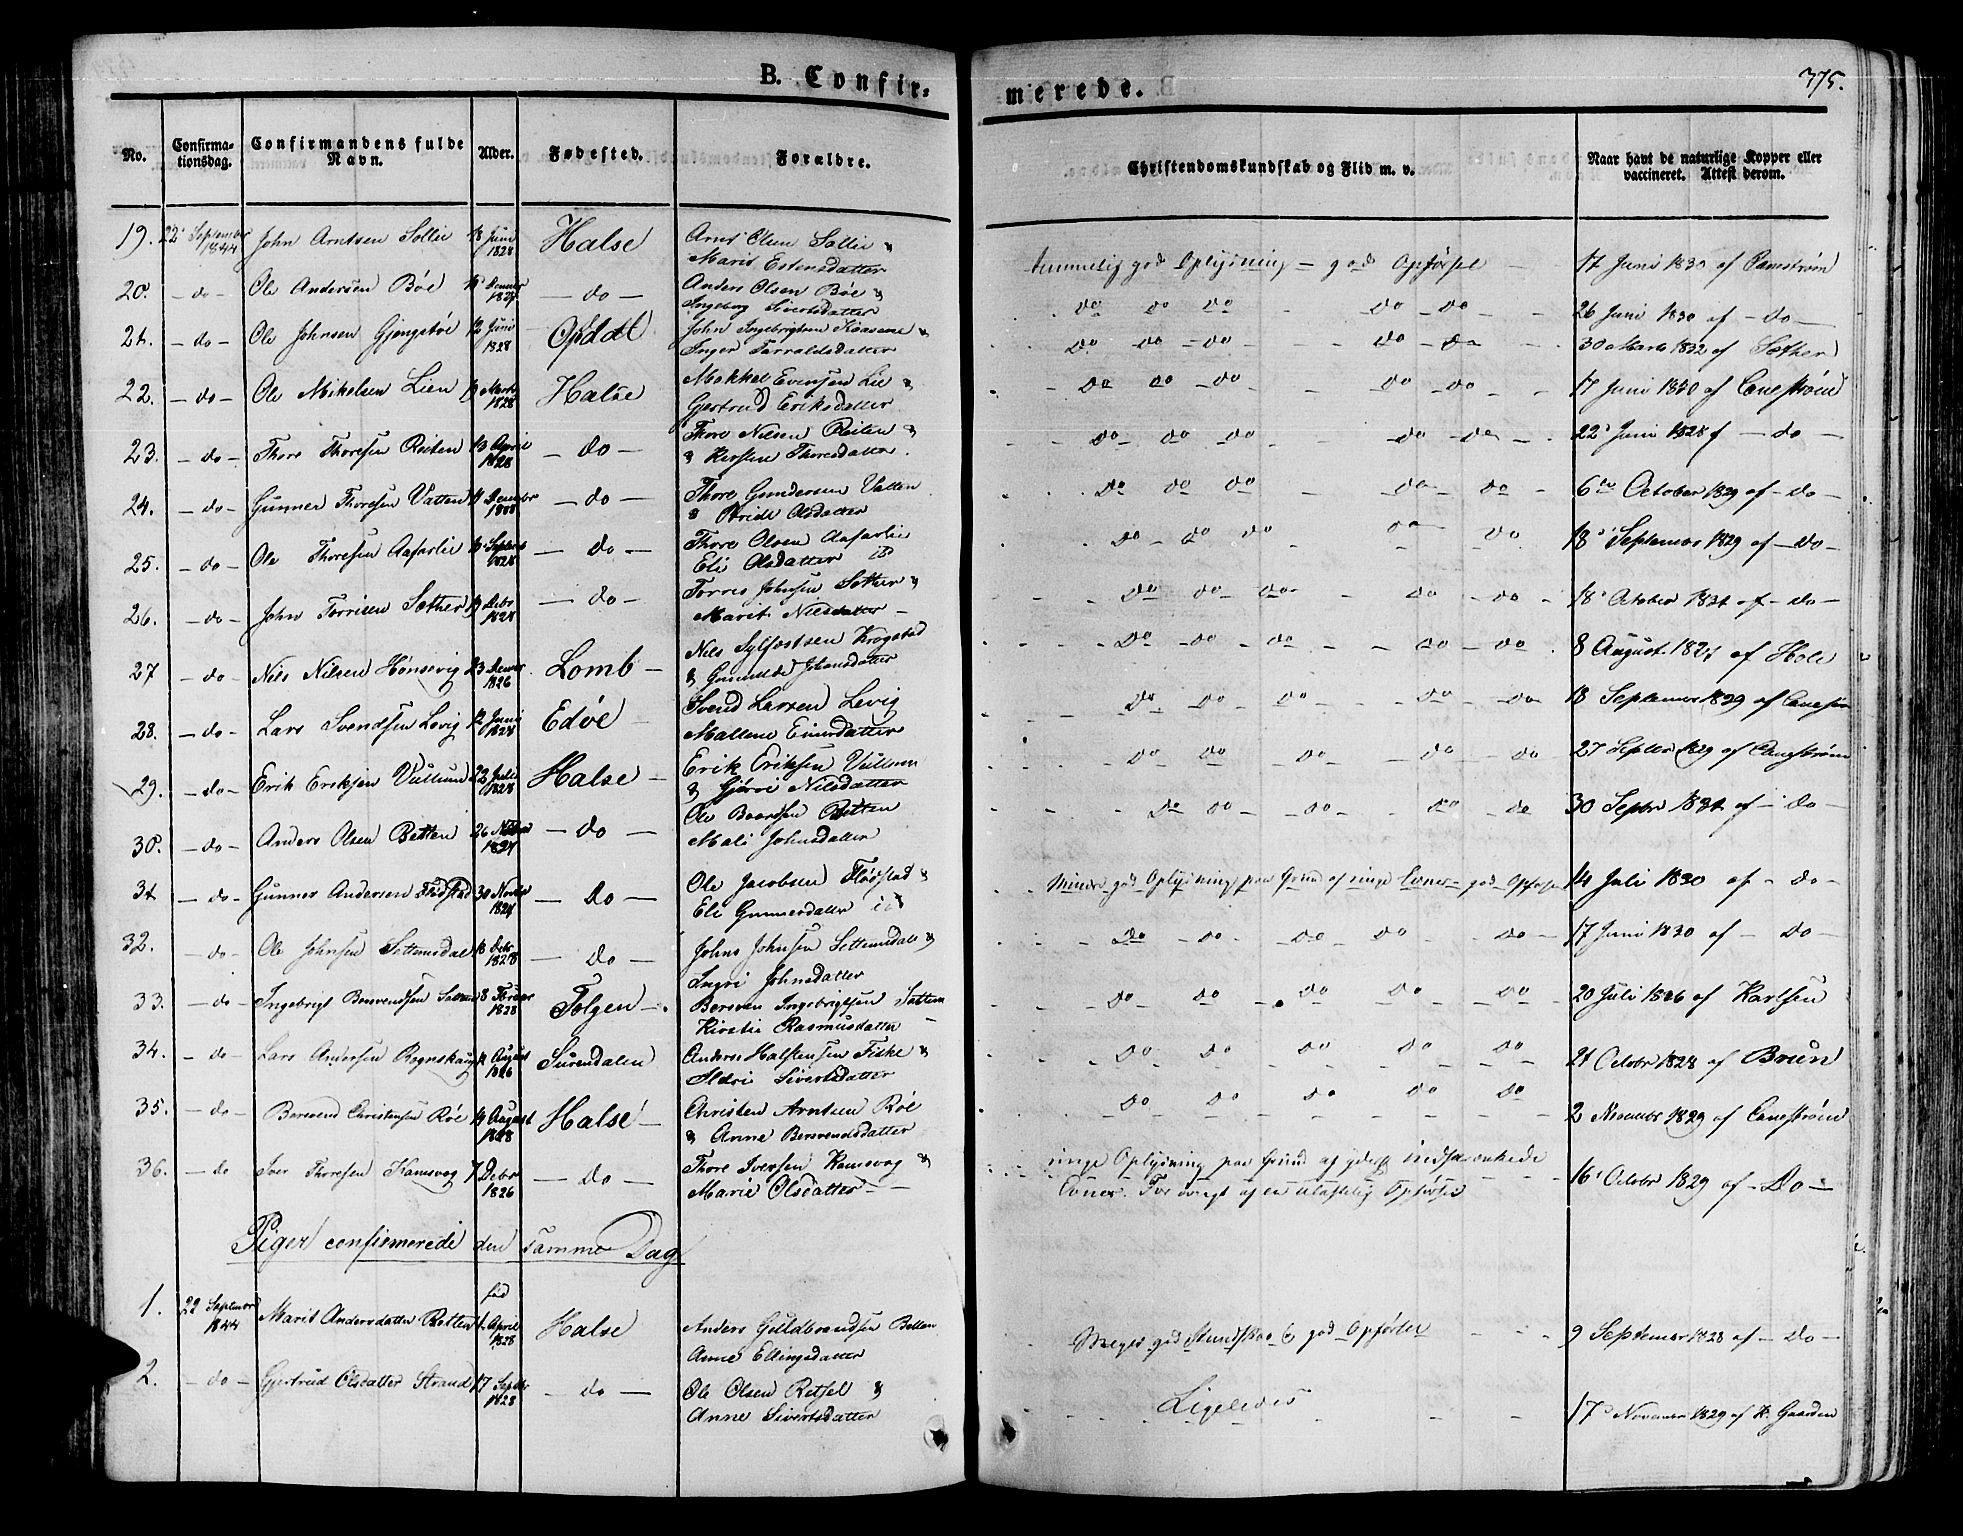 B. Confir-
merede.
375.
No.
Confirma-
tionsdag.
Confirmandens fulde
Navn.
Alder.
Fødested.
Forældre.
Christendomskundskab og Flid m. v.
Naar havt de naturlige Kopper eller
vaccineret. Attest derom.
19. 22 September 1844 John Arntsen Sollie 8 Juni 1828 Halse Arnt Olsen Sollie &
Marit Estensdatter temmelig god Oplysning - god Opførsel 17 Juni 1830 af Canestrøm
20. - do - Ole Andersen Bøe 1827 - do - Anders Olsen Bøe &
Ingeborg Sivertsdatter do do do do do 26 Juni 1830 af - do -
21. - do - Ole Johnsen Gjengstøe 12 Juni 1828 Opdal John Ingebrigtsen &
Inger Tarraldsdatter do do do do do 30 Marts 1832 af Sæther
22. - do - Ole Mikelsen Lien Marts 1828 Halse Mikkel Evensen Lie &
Gjertrud Eriksdatter do do do do do 17 Juni 1830 af Canestrøm
23. - do - Thore Thoresen Reiten 13 April 1828 - do - Thore Nilsen Reiten &
& Kirsten Thoresdatter do do do do do 22 Juni 1828 af - do -
24. - do - Gunner Thoresen Vatten - do - Thore Gundersen Vatten
& Olsdatter do do do do do 6te October 1829 af - do -
25. - do - Ole Thoresen Aasarlie 1828 - do - Thore Olsen Aasarlie
Eli Olsdatter do do do do do 18 September 1829 af - do -
26. - do - John Torrisen Sæther - do - Torris Johnsen Sæther &
Marit Nilsdatter - do do do do do 18 October 1831 af - do -
27 - do - Nils Nilsen Hønsevig 23 1826 Lomb - Nils Sylfæstsen Krogstad
& Johansdatter do do do do do 8 August 1827 af Hole
28. - do - Lars Svendsen Levig 12 Juni 1828 Edøe - Svend Larsen Levig
Mallene Einersdatter do do do do do 18 September 1829 af
29. - do - Erik Eriksen Vullum 22 Juli 1828 Halse - Erik Eriksen Vullum
& Gjøri Nilsdatter do do do do do 27 Septbr 1829 af Canestrøm
30. - do - Anders Olsen Betten 26 1827 - do - Ole Baardsen Betten
Mali Johnsdatter do do do do do 30 Septbr 1831 af - do -
31 - do - Gunner Andersen 30 1827 - do - Ole Jacobsen &
Eli Gunnersdatter Mindre god Oplysning paa Grund af ringe Evner - god Opførsel 14 Juli 1830 af - do -
32. - do - Ole Johnsen Settemsdal Debr 1828 - do - Johns Johnsen Settemsdal &
Ingri Johnsdatter do do do do do 17 Juni 1830 af - do -
33. - do - Ingebrigt Bersvendsen 8 1828 Tolgen - Bersven Ingebrigtsen
Kirstie Rasmusdatter do do do do do 20 Juli 1836 af Karlsen
34. - do - Lars Andersen Rognskaug August 1826 Surendalen Anders Halstensen Fiske &
Sildri Sivertsdatter do do do do do 21 Octobr 1828 af Brun
35. - do - Bersvend Christensen Røe August 1828 Halse - Christen Arntsen Røe
& Anne Bersvendsdatter do do do do do 2 November 1829 af Canestrøm
36. - do Iver Thoresen Kamsvog 7 Debr 1826 - do - Thore Iversen Kamsvog &
Marie Olsdatter - ringe Oplysning paa Grund af yderst indskrænkede
Evner. For øvrigt af en ulastelig Opførsel 16 Octobr 1829 af - Do -
Piger confirmerede den samme Dag
1. 22 September 1844 Marit Andersdatter Betten fød 1. April 1828 Halse Anders Guldbrandsen Betten
Anne Ellingsdatter Meget god Kundskab & god Opførsel 9 September 1828 af - do -
2. - do - Gjertrud Olsdatter Strand 17 Septbr 1828 - do - Ole Olsen Betsel &
Anne Sivertsdatter Ligeledes 17 November 1829 af K. Gaarden